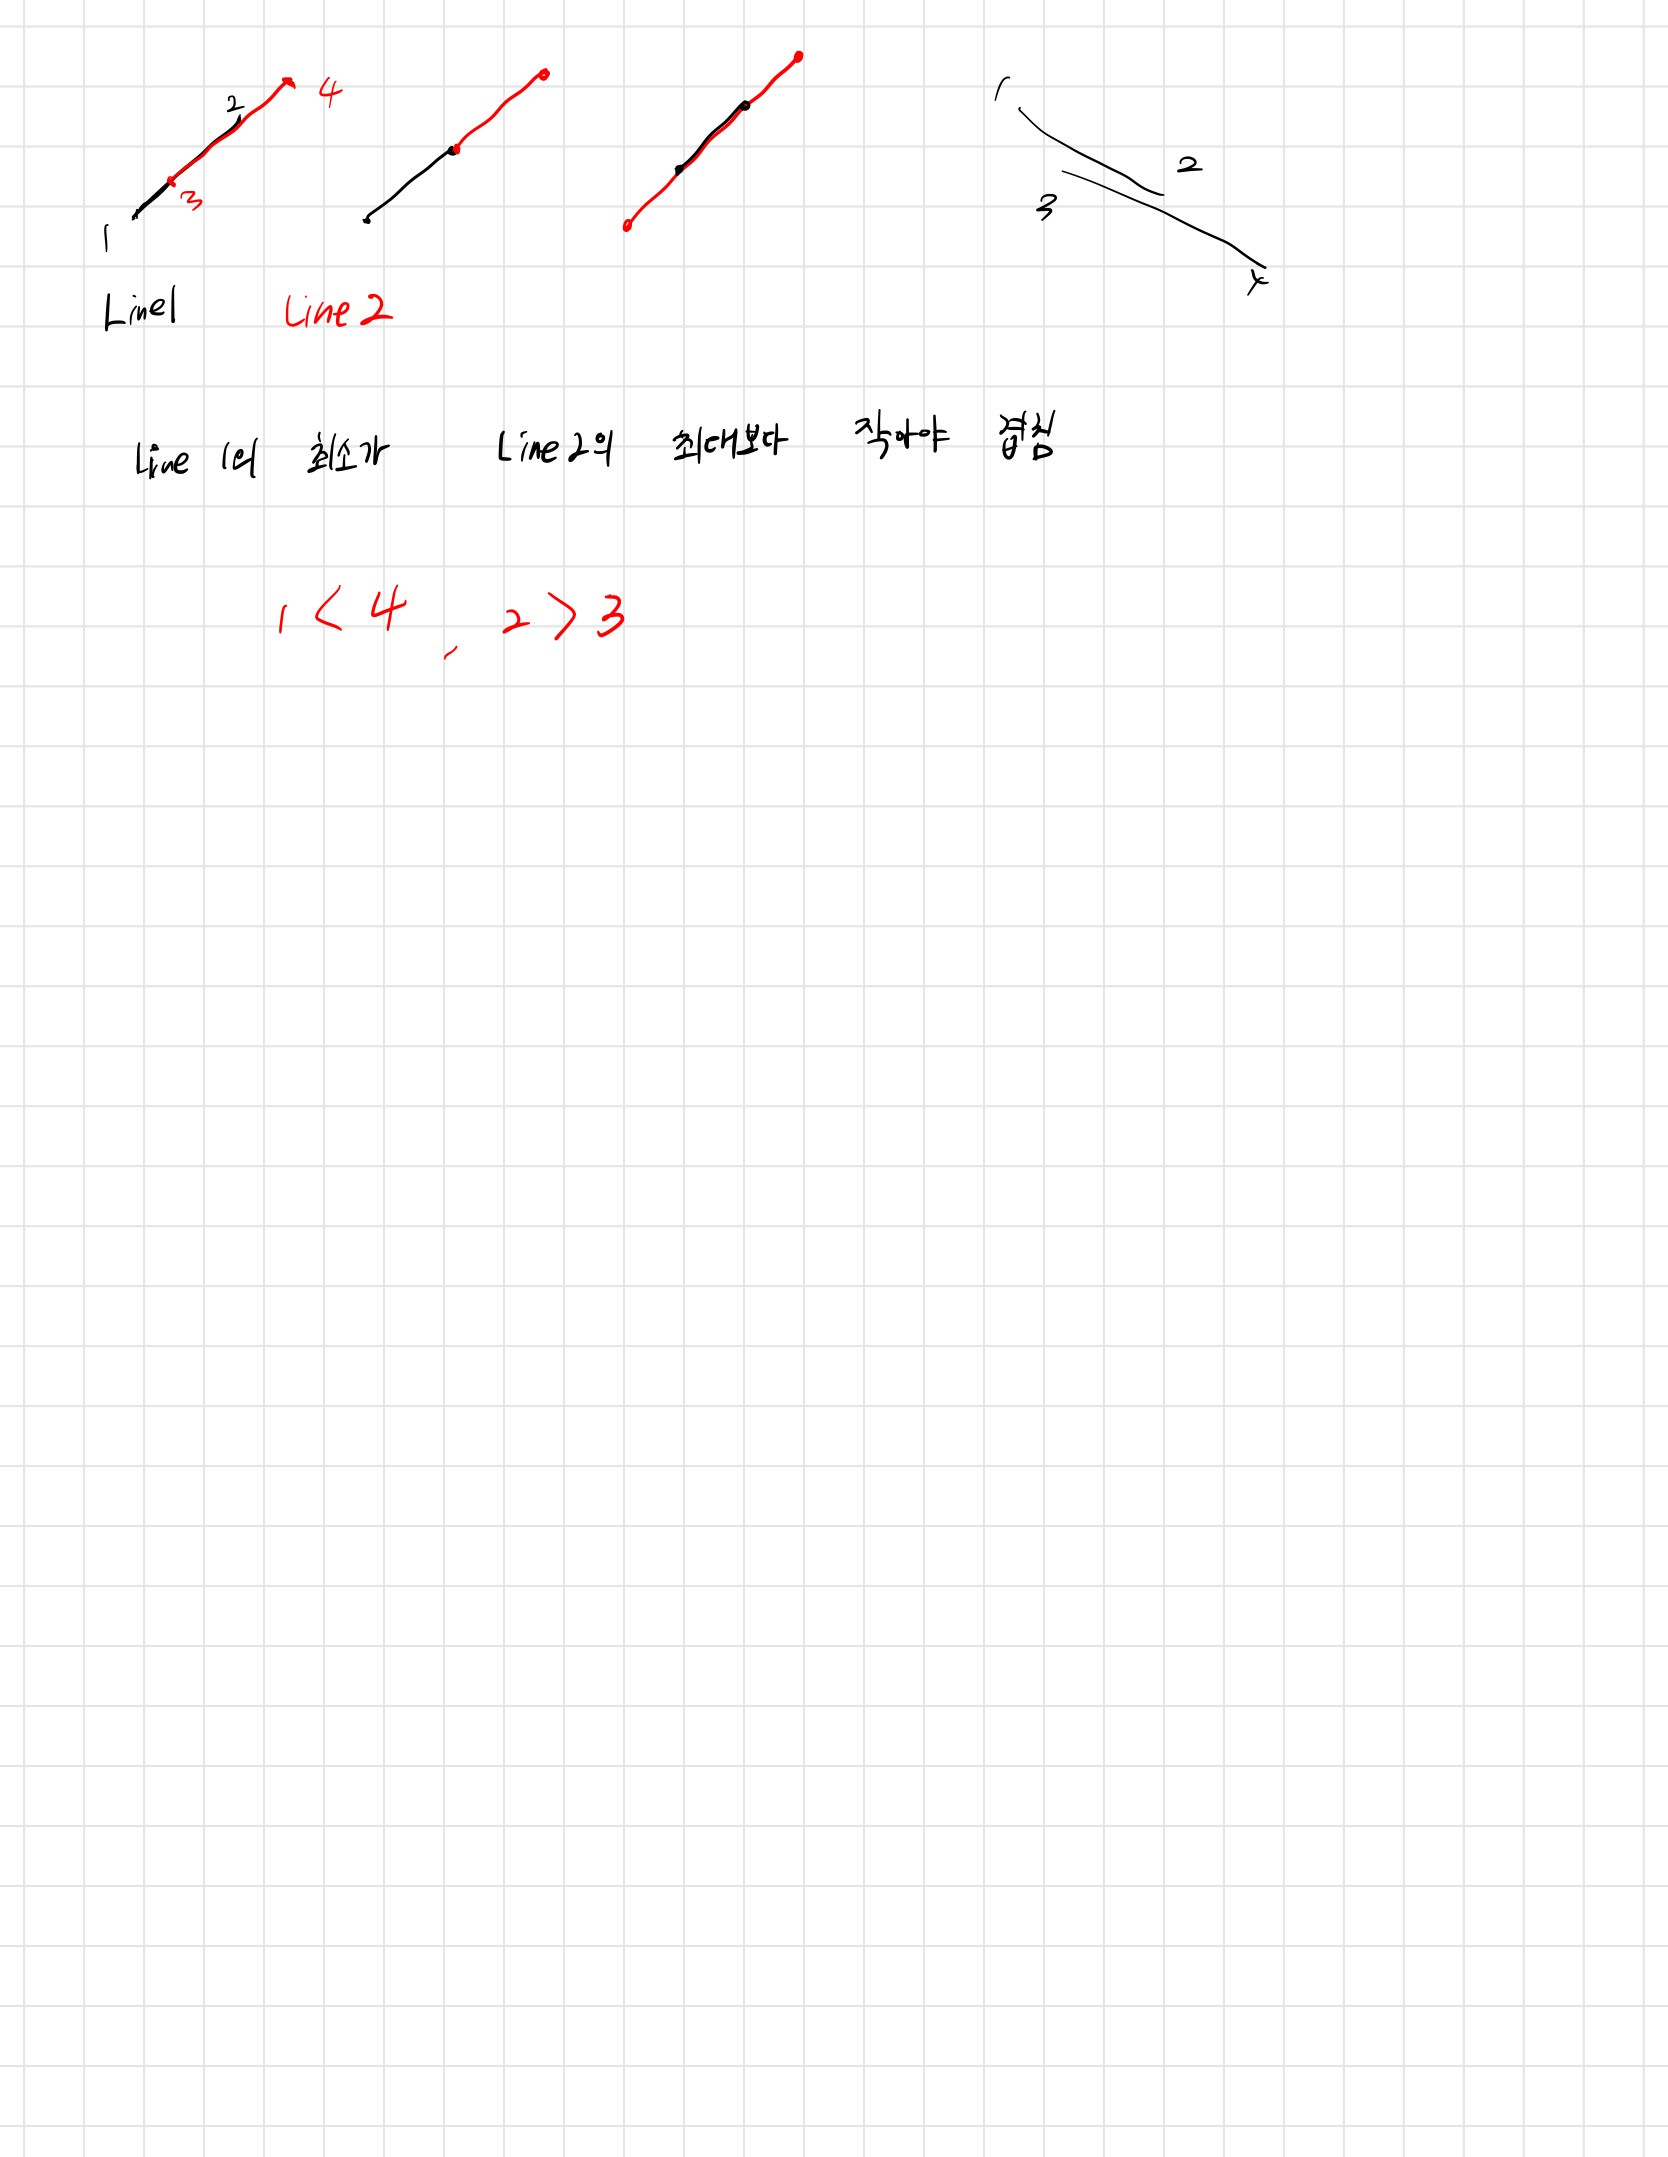 2 4
3
1
1
2
3
4
Line1 Line2
Line 1의 최소가 Line2의 최대보다 작아야 겹침
1 < 4 , 2 > 3